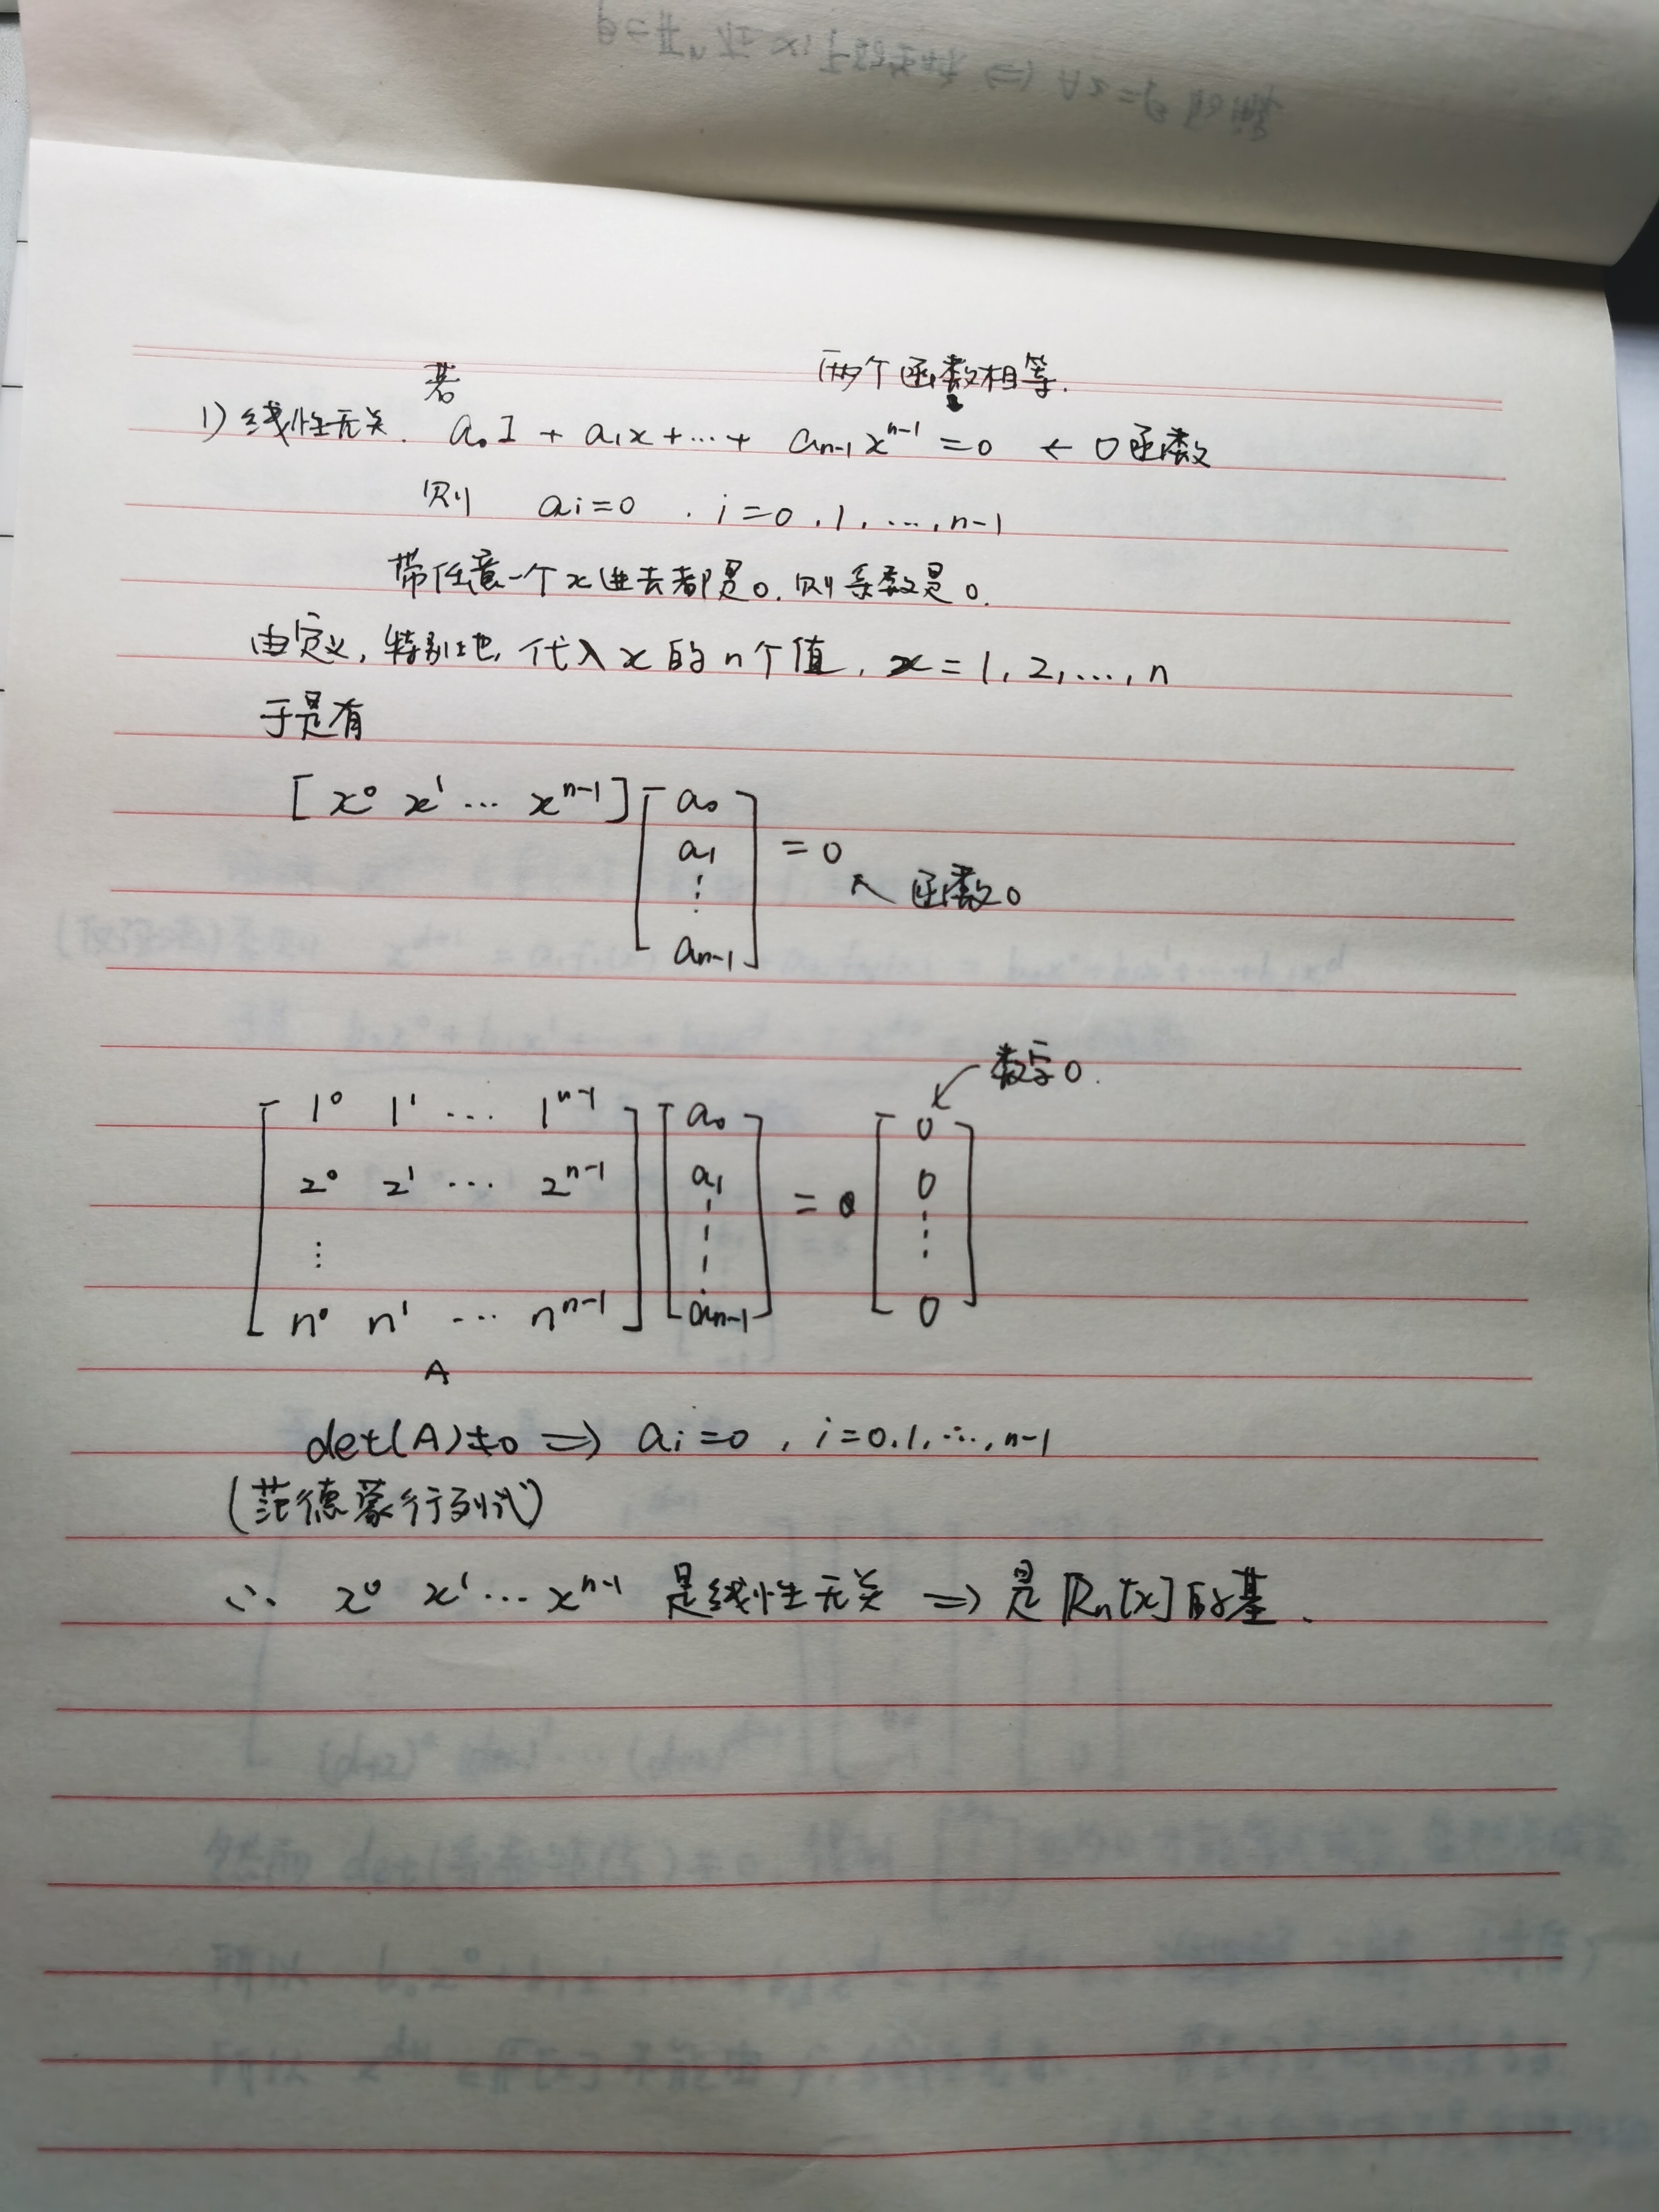 若 两个函数相等.
1) 线性无关. a₀1 + a₁x + ··· + aₙ₋₁xⁿ⁻¹ = 0 ← 0函数
则 aᵢ=0 . i=0,1, ···, n-1
带任意一个x进去都是0. 则系数是0.
由定义, 特别地, 代入x的n个值, x=1, 2, ···, n
于是有
[ x⁰ x¹ ··· xⁿ⁻¹ ] [ a₀
a₁
⋮
aₙ₋₁ ] = 0
↖ 函数0
数字0.
[ 1⁰ 1¹ ··· 1ⁿ⁻¹ ] [ a₀ ] [ 0 ]
[ 2⁰ 2¹ ··· 2ⁿ⁻¹ ] [ a₁ ] = [ 0 ]
⋮ ⋮ ⋮
[ n⁰ n¹ ··· nⁿ⁻¹ ] [ aₙ₋₁ ] [ 0 ]
A
det(A)≠0 ⇒ aᵢ=0 , i=0,1, ···, n-1
(范德蒙行列式)
∴ x⁰ x¹ ··· xⁿ⁻¹ 是线性无关 ⇒ 是 ℝₙ[x] 的基.